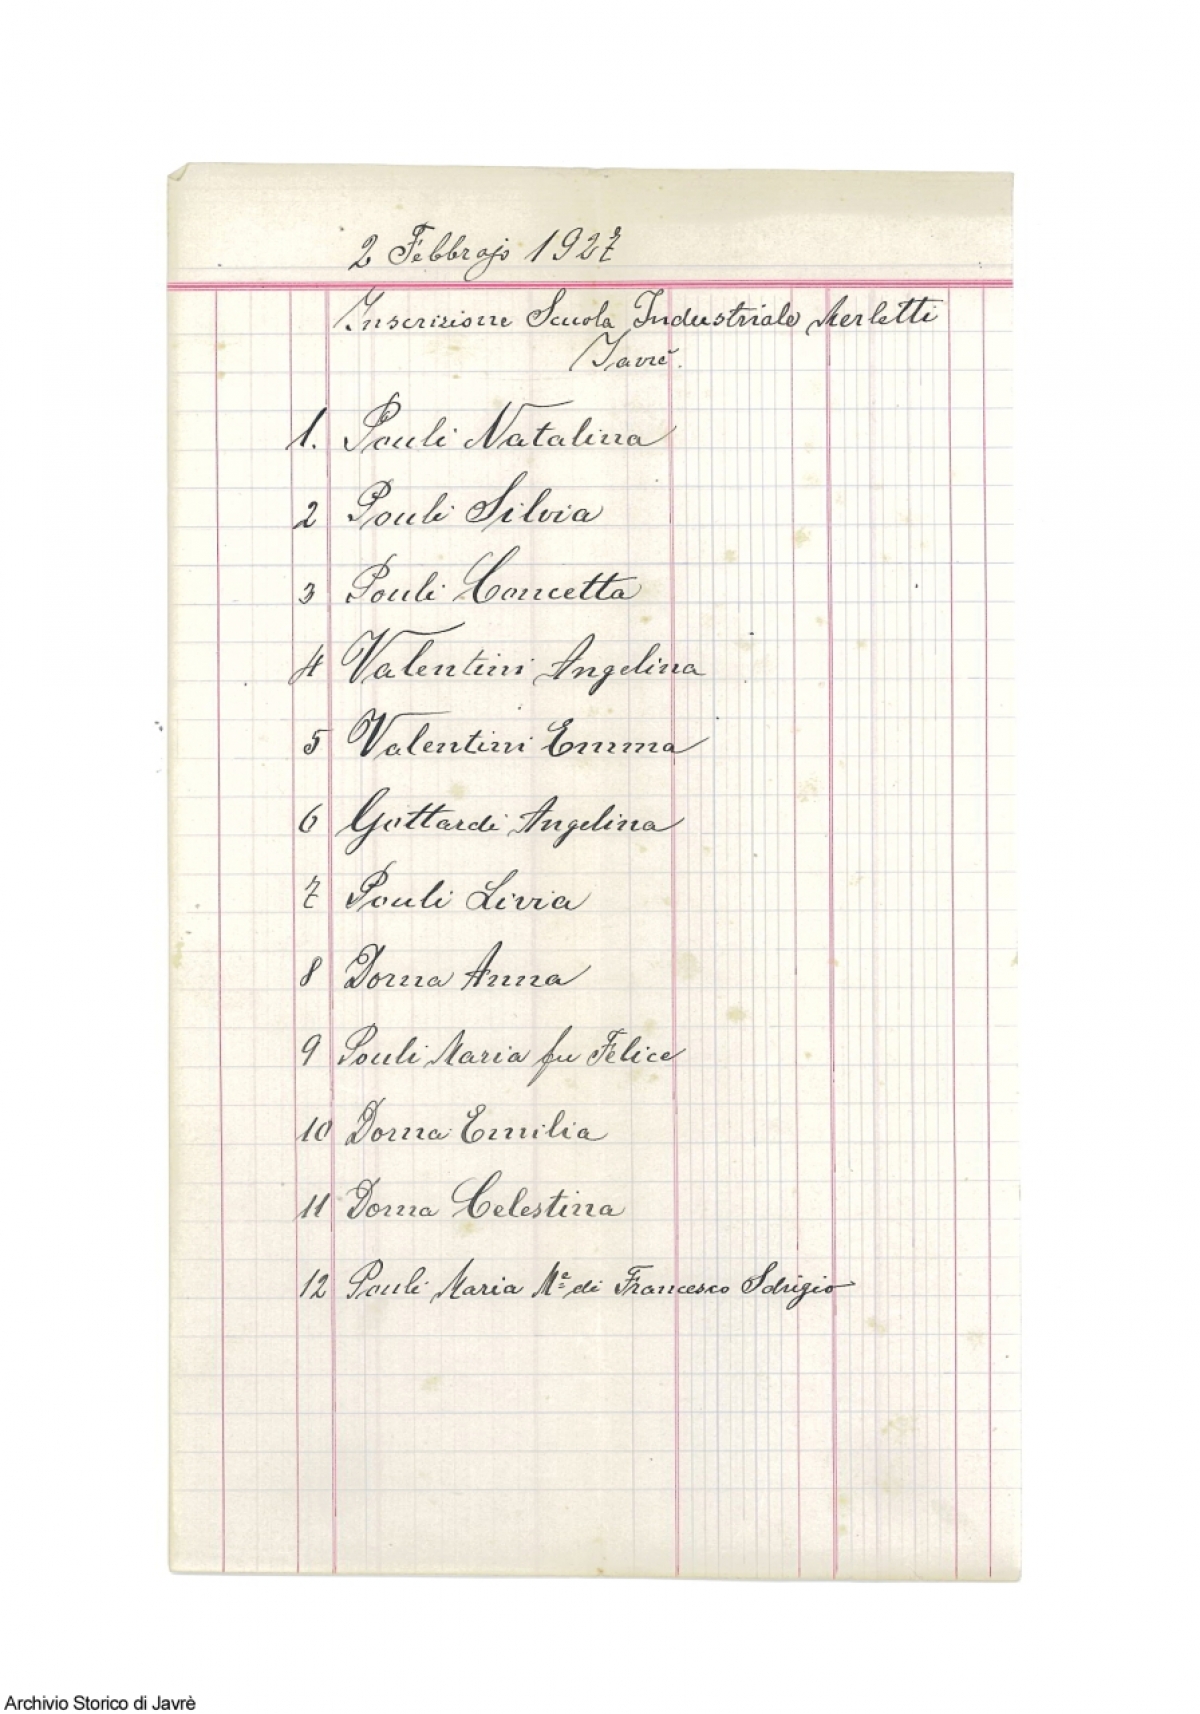 2 Febbrajo 1927
Inscrizione Scuola Industriale Merletti
Javrè.
1. Pouli Natalina
2 Pouli Silvia
3 Pouli Concetta
4 Valentini Angelina
5 Valentini Emma
6 Gottardi Angelina
7 Pouli Livia
8 Dorna Anna
9 Pouli Maria fu Felice
10 Dorna Emilia
11 Dorna Celestina
12 Pouli Maria Mª di Francesco
Archivio Storico di Javrè